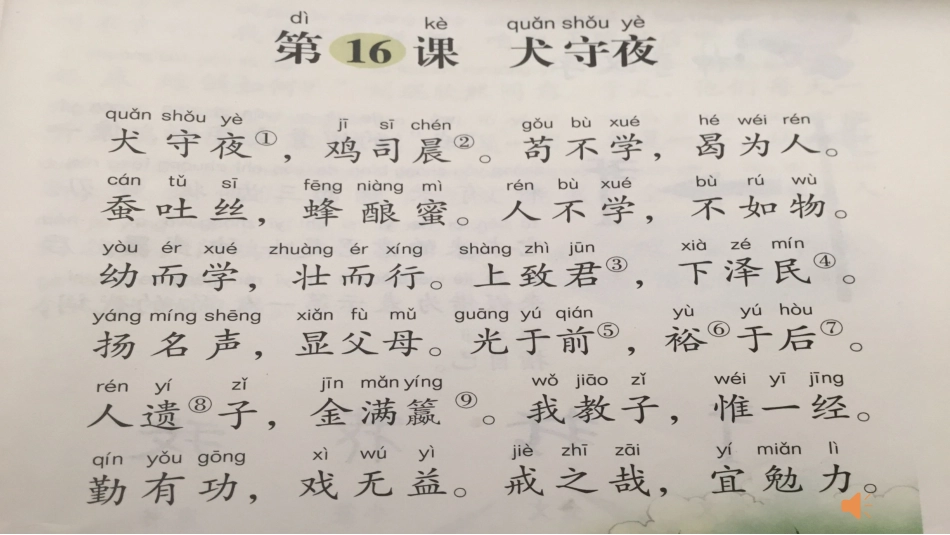 dì kè quǎn shǒu yè
第 16 课 犬守夜
quǎn shǒu yè jī sī chén gǒu bù xué hé wéi rén
犬守夜①，鸡司晨②。苟不学，曷为人。
cán tǔ sī fēng niàng mì rén bù xué bù rú wù
蚕吐丝，蜂酿蜜。人不学，不如物。
yòu ér xué zhuàng ér xíng shàng zhì jūn xià zé mín
幼而学，壮而行。上致君③，下泽民④。
yáng míng shēng xiǎn fù mǔ guāng yú qián yù yú hòu
扬名声，显父母。光于前⑤，裕⑥于后⑦。
rén yí zǐ jīn mǎn yíng wǒ jiāo zǐ wéi yī jīng
人遗⑧子，金满籯⑨。我教子，惟一经。
qín yǒu gōng xì wú yì jiè zhī zāi yí miǎn lì
勤有功，戏无益。戒之哉，宜勉力。